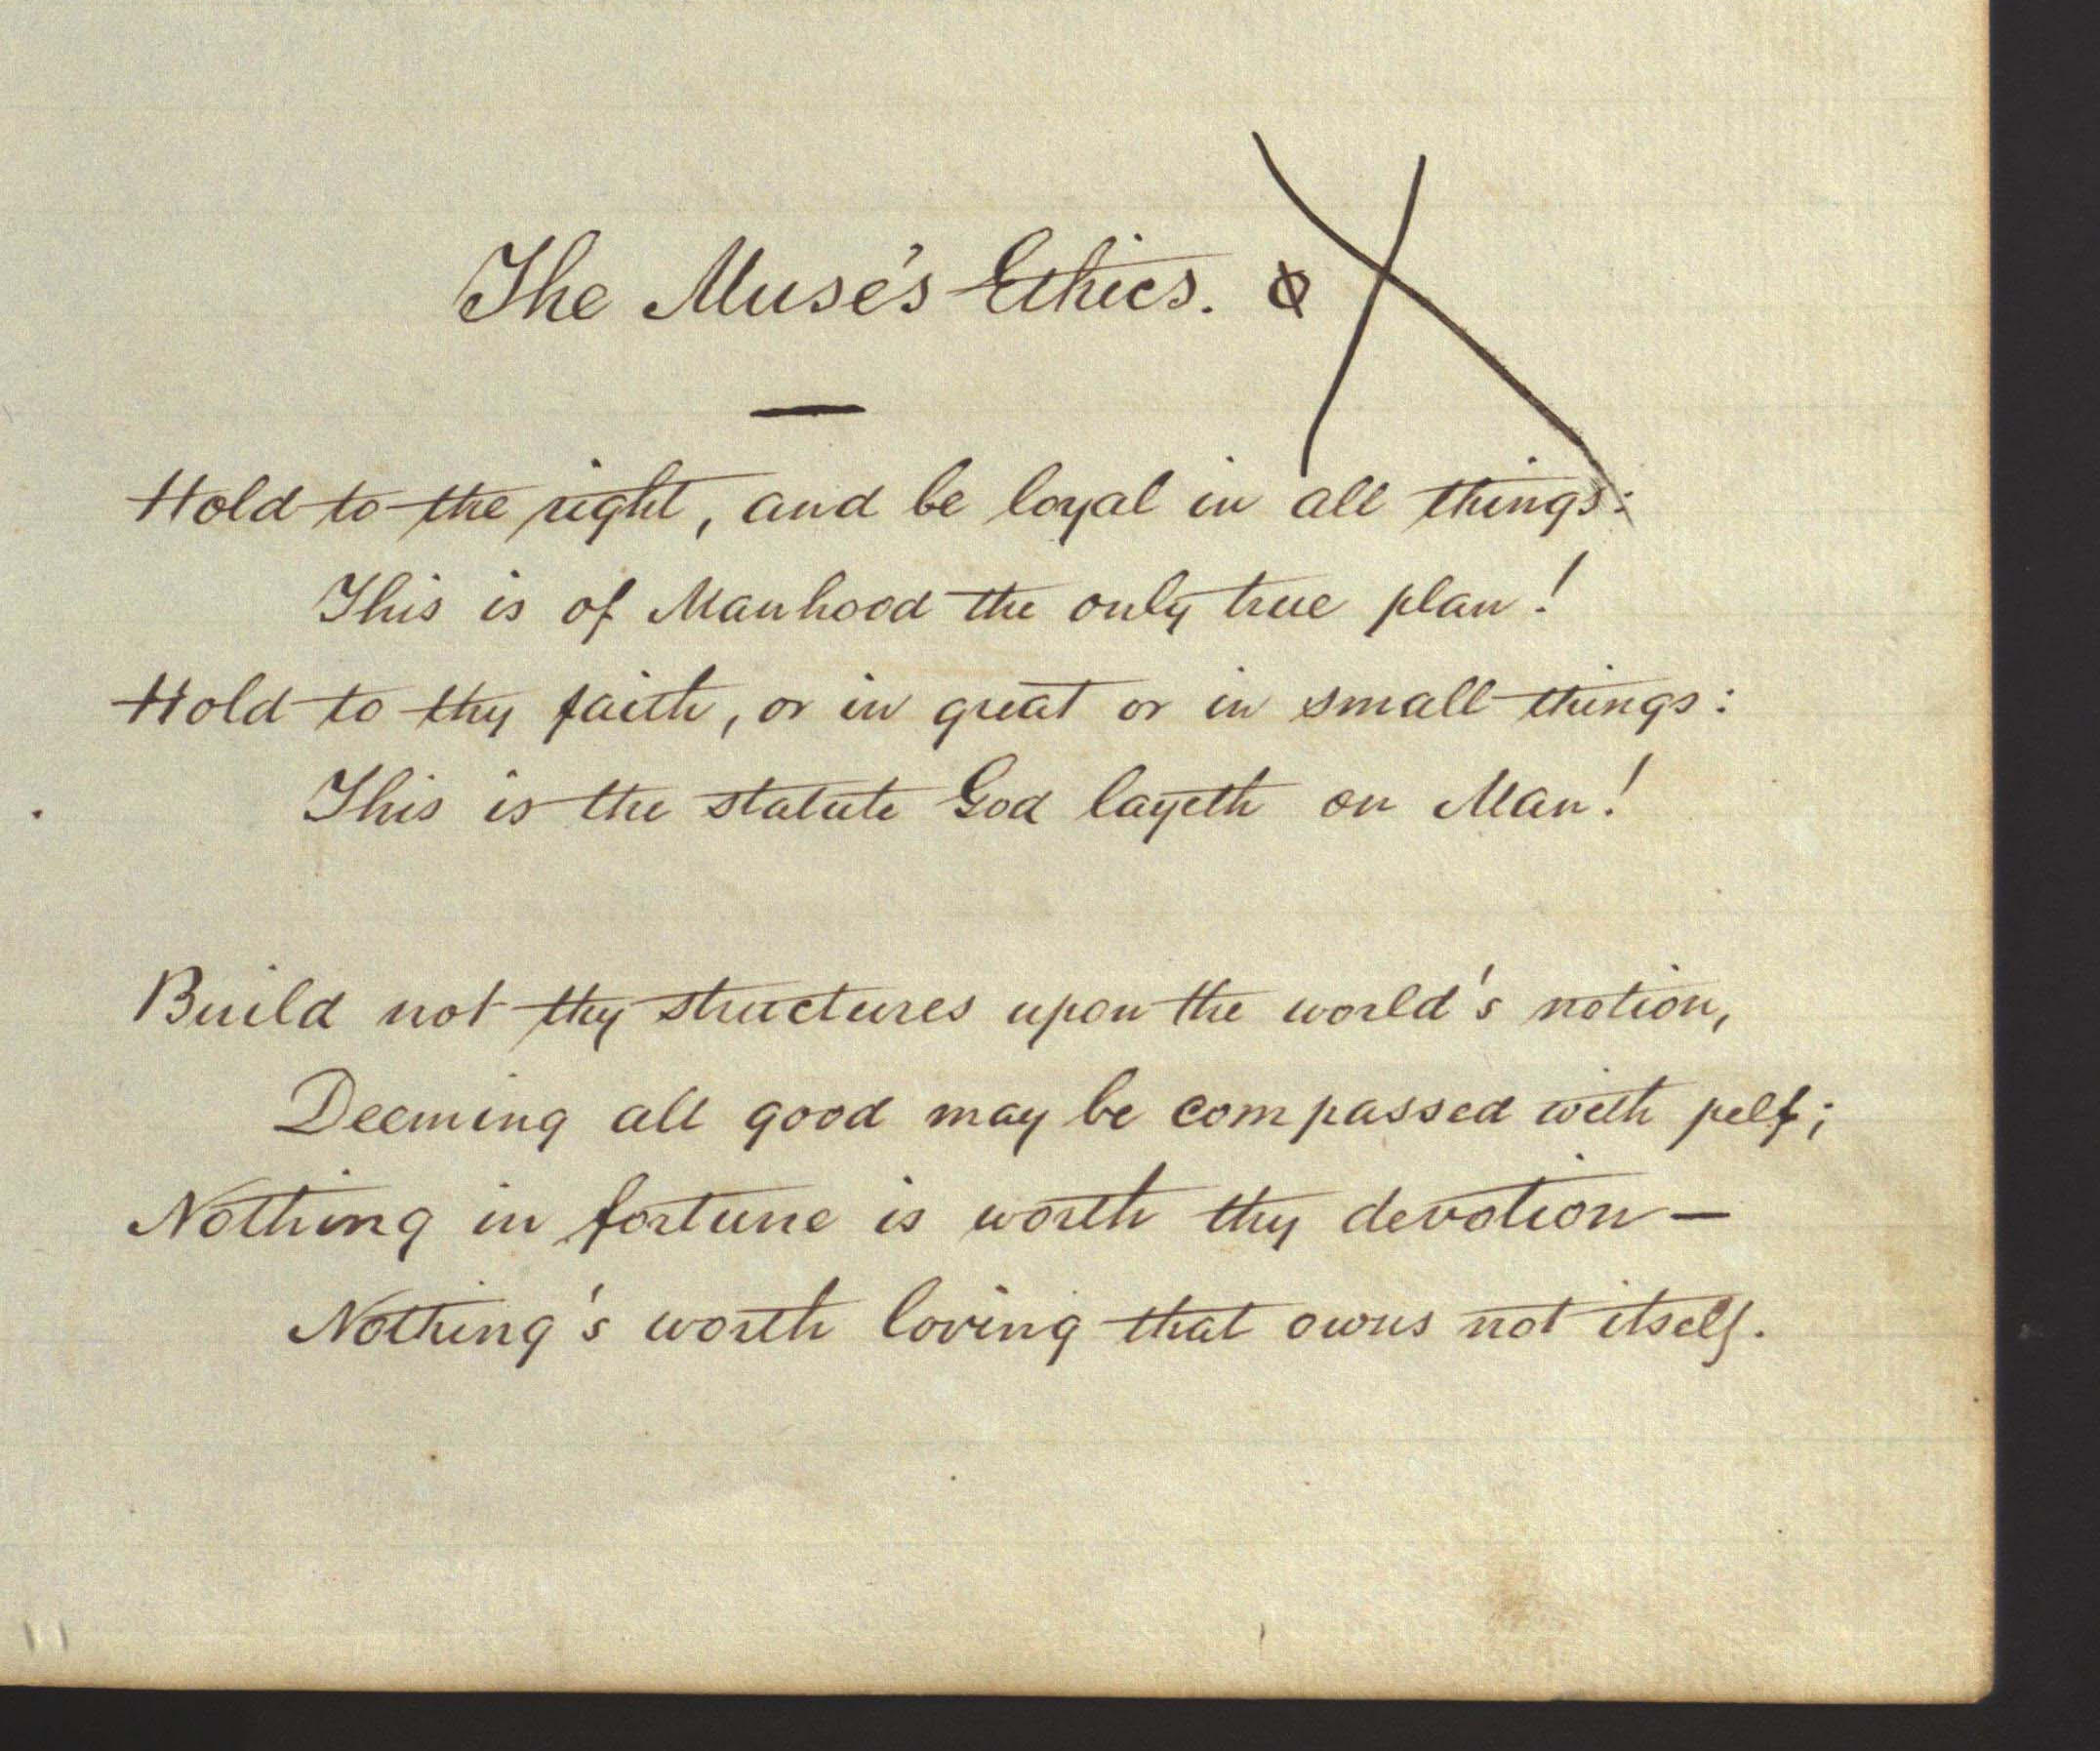 The Muse's Ethics.
Hold to the right, and be loyal in all things:
This is of Manhood the only true plan!
Hold to thy faith, or in great or in small things:
This is the statute God layeth on Man!
Build not thy structures upon the world's notion,
Deeming all good may be compassed with pelf;
Nothing in fortune is worth thy devotion—
Nothing's worth loving that owns not itself.